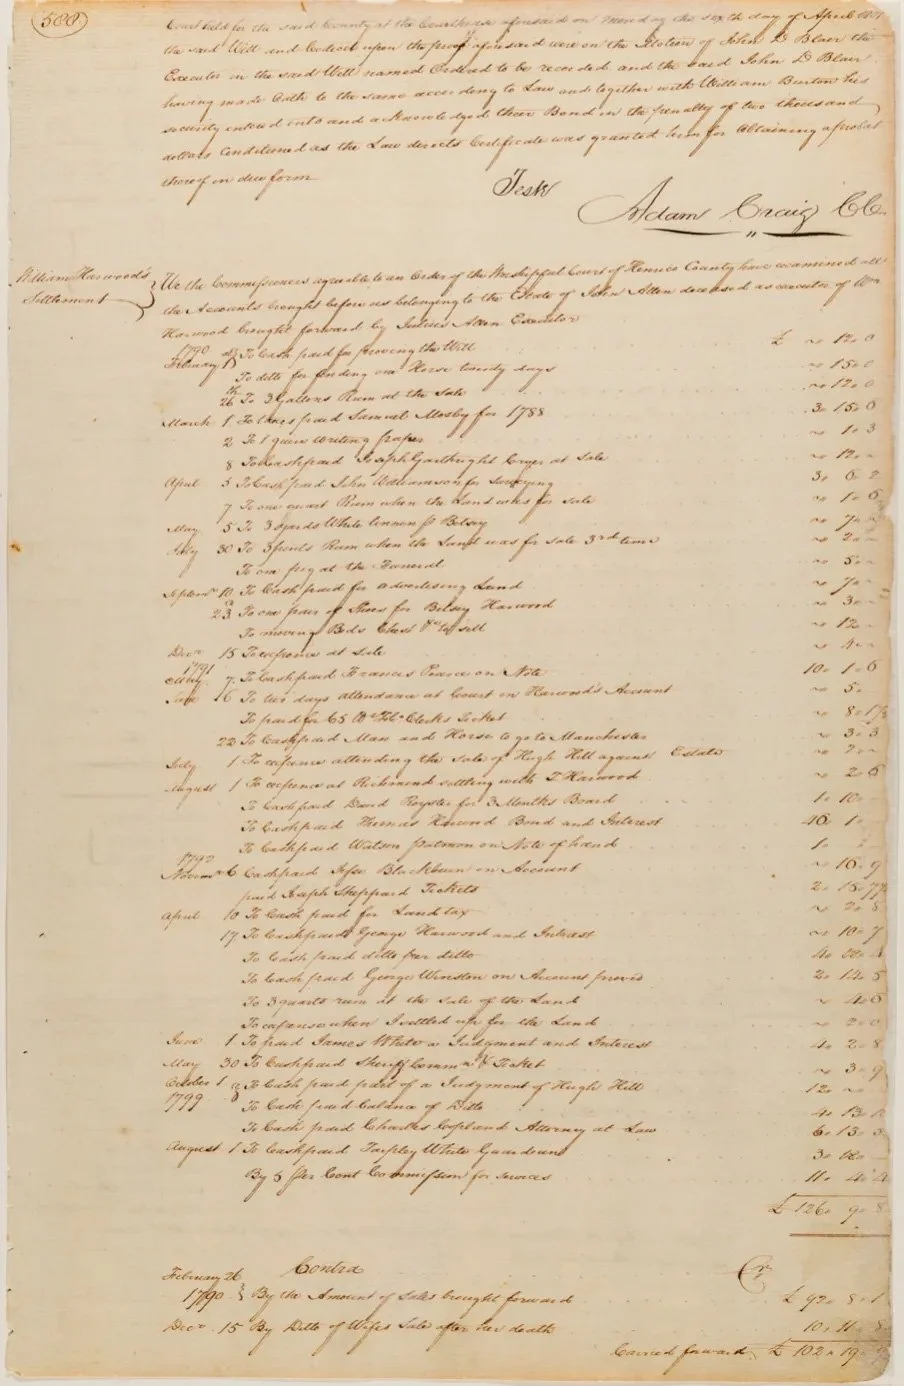 588
Court held for the said County at the Courthouse aforesaid on Monday the sixth day of April
the said Will and Codicil upon the proof aforesaid were on the Motion of John D Blair the
Executor in the said Will named Ordered to be recorded and the said John D Blair
having made Oath to the same according to Law and together with William Burton his
security entered into and acknowledged their Bond in the penalty of two thousand
dollars Conditioned as the Law directs Certificate was granted him for Obtaining a probat
thereof in due form
Teste
Adam Craig CC
William Harwood's
Settlement
We the Commissioners agreeable to an Order of the Worshipful Court of Henrico County have examined all
the Accounts brought before us belonging to the Estate of John Allen deceased as executor of Wm
Harwood brought forward by Julius Allen Executor
1790
February To Cash paid for proving the Will £ " 12. 0
To ditto for finding one Horse twenty days " 15. 0
26 To 3 Gallons Rum at the sale " 12. 0
March 1 To taxes paid Samuel Mosby for 1788 3. 15. 0
2 To 1 quire writing paper " 1. 3
8 To Cash paid Joseph Gathright Cryer at Sale " 12. "
April 3 To Cash paid John Williamson for Surveying 3. 6. 2
7 To one quart Rum when the Land was for sale " 1. 6
May 5 To 3 yards White linnen for Betsey " 7. "
July 30 To 3 pints Rum when the Land was for sale 3rd time " 2. "
To one pig at the Funeral " 5. "
Septemr 10 To Cash paid for advertising Land " 7. "
23 To one pair of Shoes for Betsey Harwood " 3. "
To moving Beds Chest &c to sell " 12. "
Decr 15 To expence at sale " 4. "
1791
May 7 To Cash paid Francis Pearce on Note 10. 1. 6
June 16 To two days attendance at Court in Harwood's Account " 5. "
To paid for 65 lbs Tobo Clerks Ticket " 8. 1½
22 To Cash paid Man and Horse to go to Manchester " 3. 3
July 1 To expence attending the sale of Hugh Hill against Estate " 2. "
August 1 To expence at Richmond settling with T Harwood " 2. 6
To Cash paid David Royster for 3 Months Board 1. 10.
To Cash paid Thomas Harwood Bond and Interest 46. 1.
To Cash paid Watson Patmon on Note of hand 1.
1792
Novemr 6 Cash paid Jesse Blackburn on Account " 16. 9
paid Joseph Sheppard Tickets 2. 15.
April 10 To Cash paid for Land tax " 2. 8
17 To Cash paid George Harwood and Interest " 10. 7
To Cash paid ditto per ditto
To Cash paid George Winston on Account proved 2. 14. 5
To 3 quarts rum at the sale of the Land " 4. 6
To expense when I settled up for the Land " 2. 0
June 1 To paid James White a Judgment and Interest 4. 2. 8
May 30 To Cash paid Sheriff Commn & Ticket " 3. 9
October 1 To Cash paid part of a Judgment of Hugh Hill 12. "
1799 To Cash paid balance of Ditto 4. 13.
To Cash paid Charles Copland Attorney at Law 6. 13. 3
August 1 To Cash paid Tarpley White Guardian
By 5 per Cent Commission for services 11. 4. 4
£ 126. 9. 8
Contra Cr
February 26
1790 By the Amount of Sales brought forward £ 92. 8. 1
Decr 15 By Ditto of Wifes Sale after her death 10. 11. 8
Carried forward £ 102. 19.